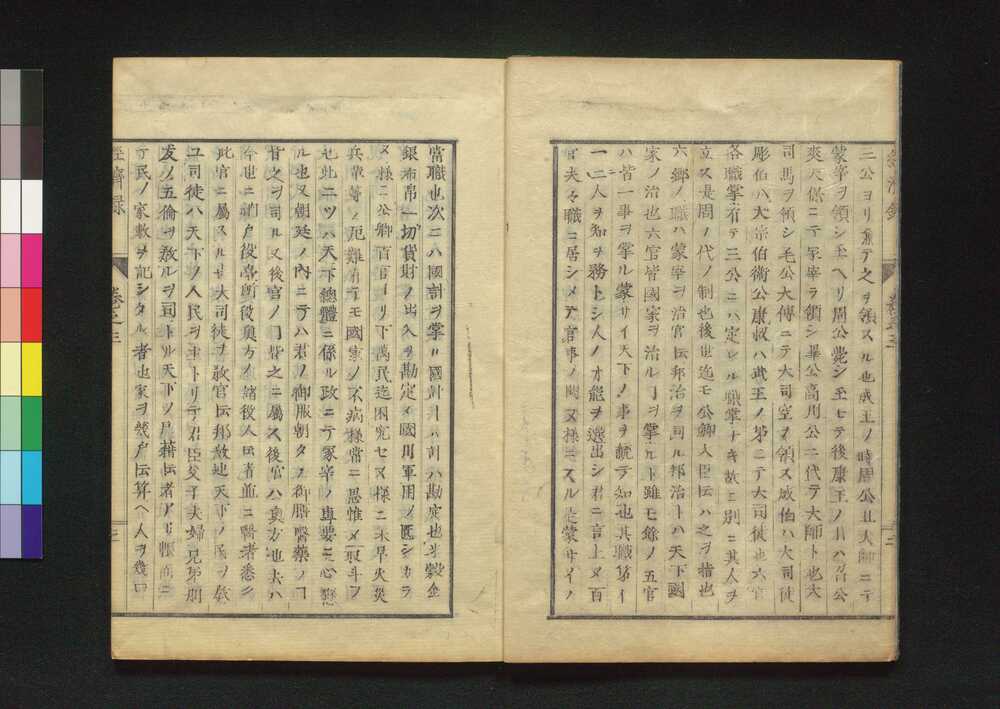 三公ヨリ兼テ之ヲ領スル也成王ノ時周公旦大師ニテ
蒙宰ヲ領シ玉ヘリ周公薨シ玉ヒテ後康王ノ時ハ召公
奭大保ニテ冡宰ヲ領シ畢公高周公ニ代テ大師ト也大
司馬ヲ領シ毛公大傅ニテ大司空ヲ領ス成伯ハ大司徒
彫伯ハ大宗伯衞公康叔ハ武王ノ弟ニテ大司徒也六官
各職掌有テ三公ニハ定レル職掌ナキ故ニ別ニ其人ヲ
立ス是周ノ代ノ制也後世迄モ公卿大臣伝ハ之ヲ措也
六郷ノ職ハ蒙宰ヲ治官伝邦治ヲ司ル邦治トハ天下國
家ノ治也六官皆國家ヲ治ルヿヲ掌ルト雖モ餘ノ五官
ハ皆一事ヲ掌ル蒙サイ天下ノ事ヲ統テ知也其職第一
一ニ人ヲ知ヲ務トシ人ノ才能ヲ選出シ君ニ言上メ百
官夫々職ニ居シメテ官事ノ闕ヌ様ニスル是蒙サイノ
當職也次ニハ國計ヲ掌ル國計トハ計ハ勘定也米穀金
銀布帛一切貨財ノ出入ヲ勘定メ國用軍用ノ匱シカラ
ヌ様ニ公卿百官ヨリ下萬民迄困究セヌ様ニ水旱火災
兵革等ノ厄難有テモ國家ノ不病様常ニ思惟メ取斗フ
也此二ツハ天下總體ニ係ル政ニテ冢宰ノ專要ニ心懸
ル也又朝廷ノ内ニテハ君ノ御服朝夕ノ御膳醫藥ノヿ
皆之ヲ司ル又後宮ノヿ皆之ニ屬ス後宮ハ奥方也夫ハ
今世ニ納戸役臺所役奥方ノ諸役人伝者並ニ醫者悉ク
此官ニ屬スル也大司徒ヲ敎官伝邦敎迚天下ノ
ユ司徒ハ天下ノ人民ヲ主トリテ君臣父子夫婦兄弟朋
友ノ五倫ヲ敎ルヲ司トル天下ノ戸籍伝者アリ帳面ニ
テ民ノ家數ヲ記シタル者也家ヲ幾戸伝算ヘ人ヲ幾口
經濟錄
卷之三
三